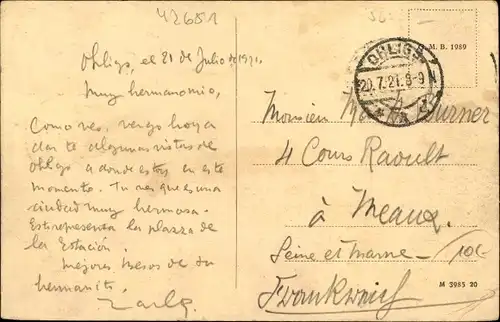 42681
Ohligs, el 21 de Julio de 1921.
Muy hermano mio,
Como ves, vengo hoy a
dar te algunas vistas de
Ohligs a donde estoy en este
momento. Tu ves que es una
ciudad muy hermosa.
Esta representa la plaza de
la Estación.
Mejores besos de tu
hermanito
M. B. 1989
OHLIGS
20.7.21. 8-9
Monsieur
4 Cours Raoult
à Meaux.
Seine et Marne
Frankreich
10€
M 3985 20